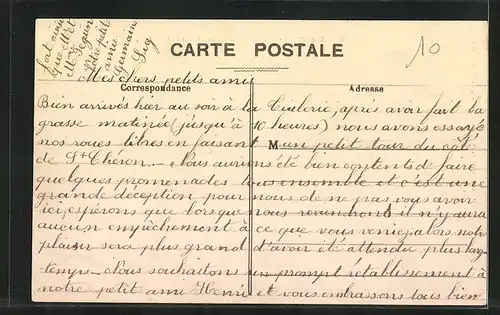 CARTE POSTALE
10
Correspondance
Adresse
M
Mes chers petits amis
Bien arrivés hier au soir à la Tuilerie, après avoir fait la
grasse matinée (jusqu'à 10 heures) nous avons essayé
nos roues libres en faisant un petit tour du côté
de St Chéron. - Nous aurions été bien contents de faire
quelques promenades tous ensemble et c'est une
grande déception pour nous de ne pas vous avoir
ici, espérons que lorsque nous reviendrons il n'y aura
aucun empêchement à ce que vous veniez, alors notre
plaisir sera plus grand d'avoir été attendu plus long-
temps. - Nous souhaitons un prompt rétablissement à
notre petit ami Henri et vous embrassons tous bien
fort ainsi
que Mr et
Me Seguin
Votre petit
ami
Germain